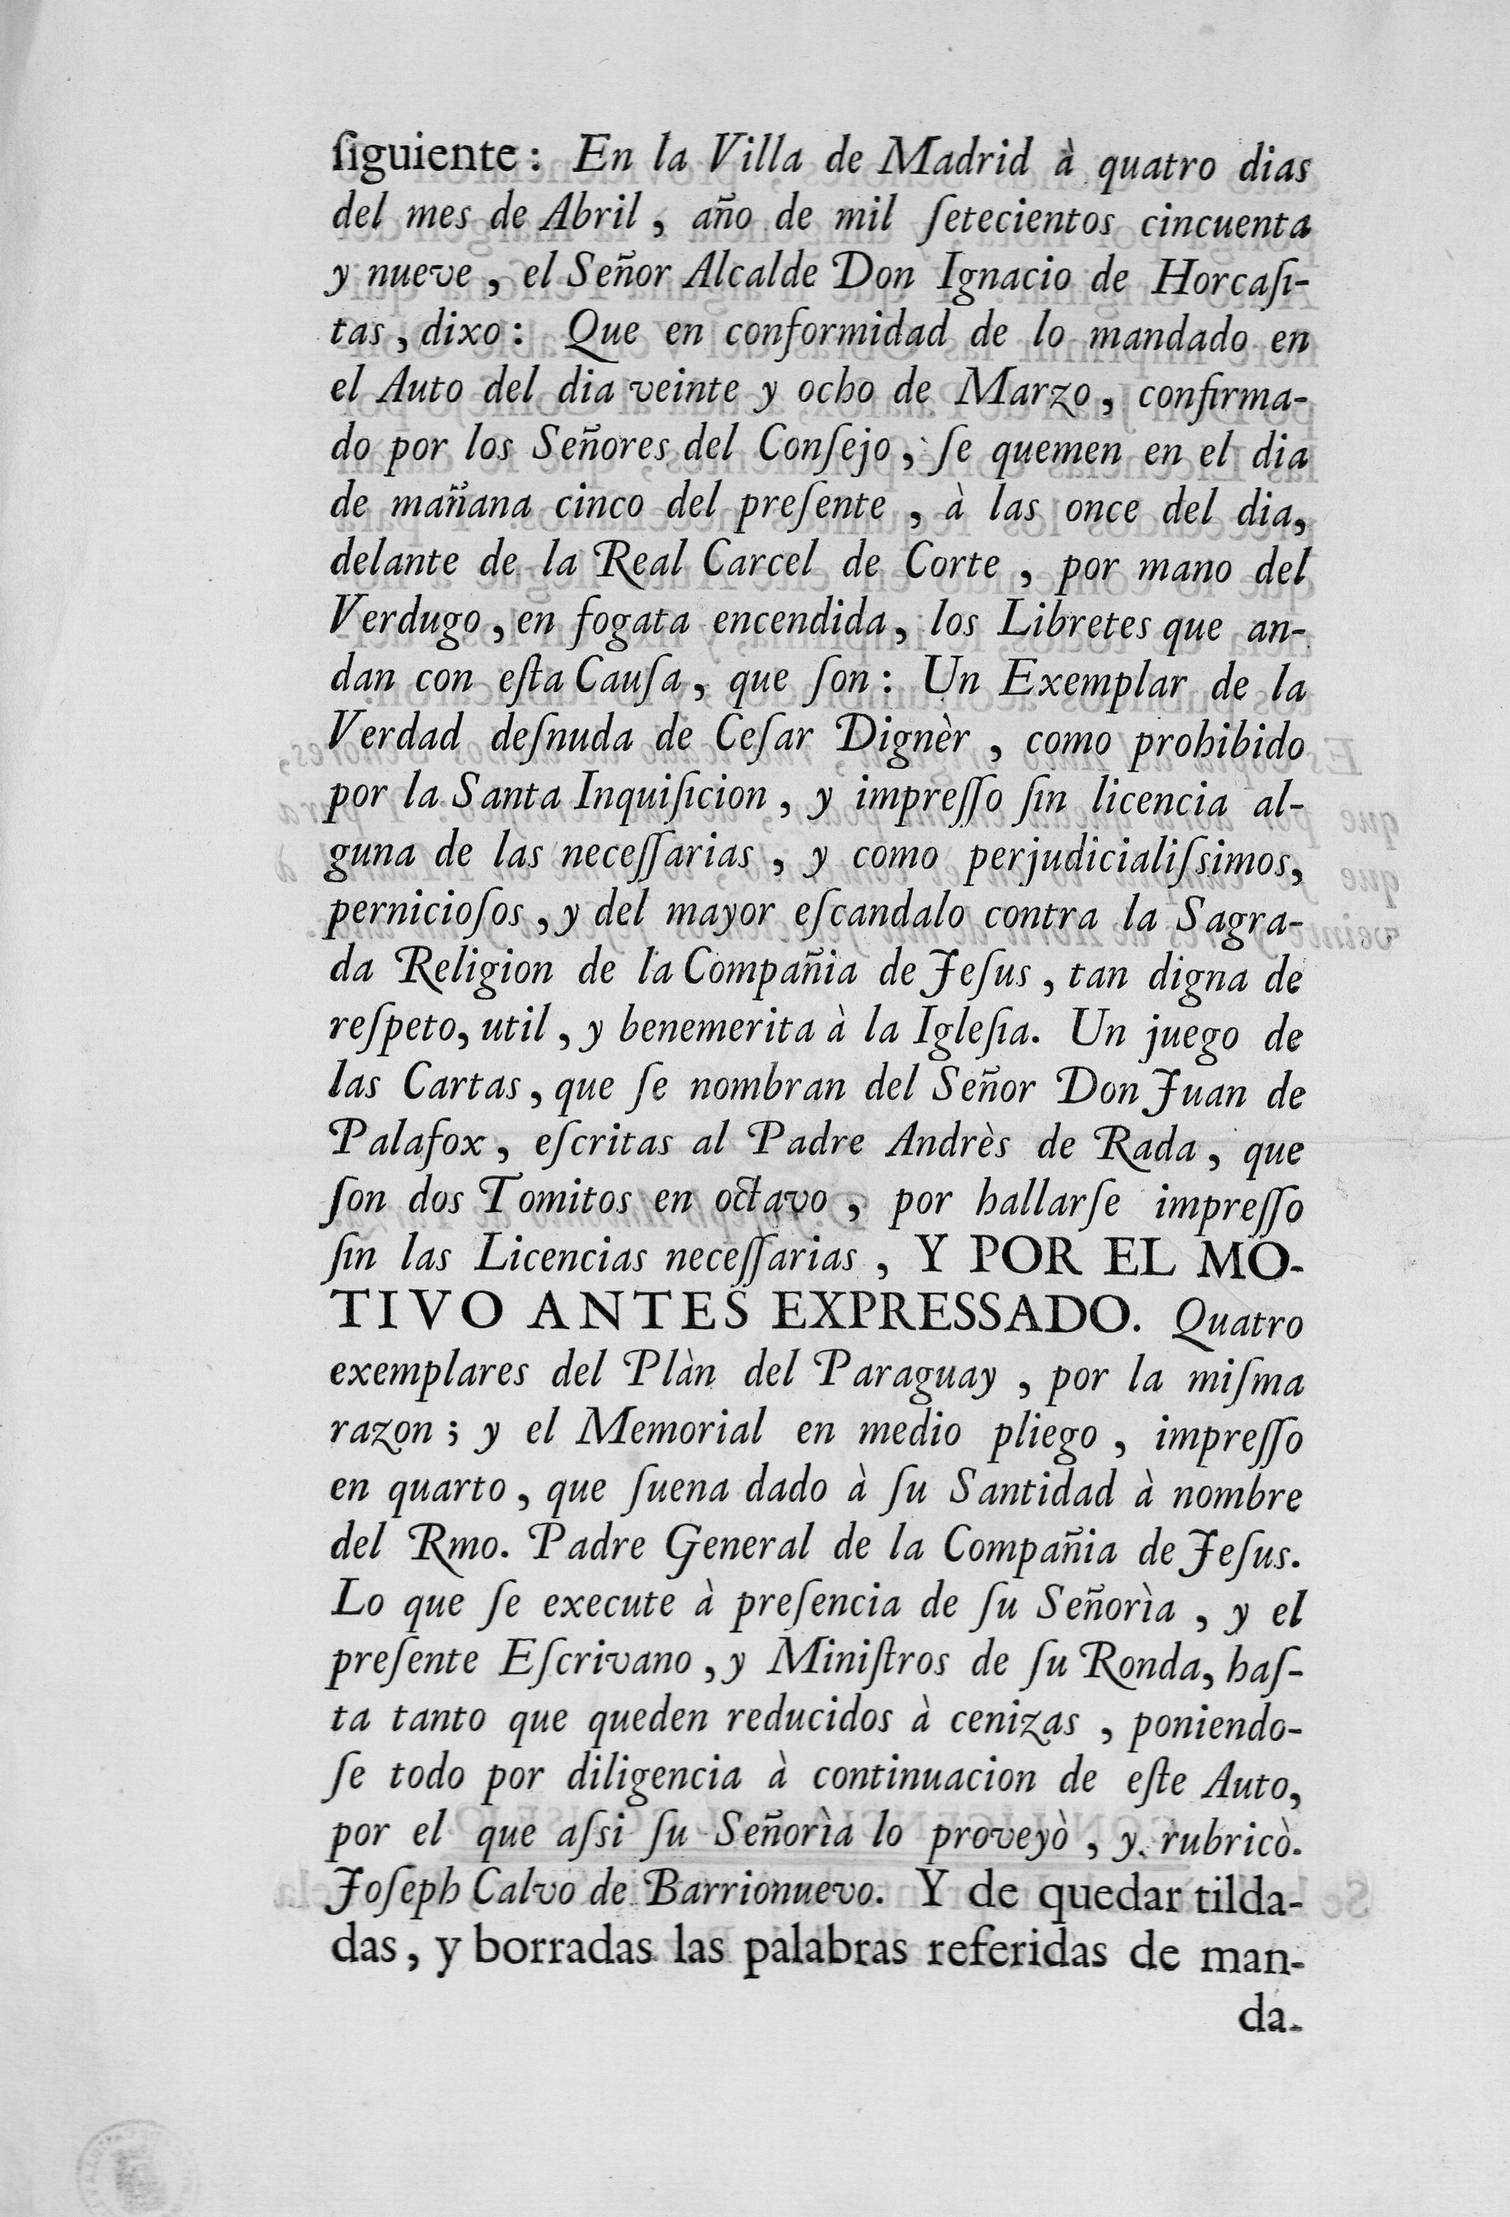 ſiguiente: En la Villa de Madrid à quatro dias
del mes de Abril, año de mil ſetecientos cincuenta
y nueve, el Señor Alcalde Don Ignacio de Horcaſi-
tas, dixo: Que en conformidad de lo mandado en
el Auto del dia veinte y ocho de Marzo, confirma-
do por los Señores del Conſejo, ſe quemen en el dia
de mañana cinco del preſente, à las once del dia,
delante de la Real Carcel de Corte, por mano del
Verdugo, en fogata encendida, los Libretes que an-
dan con eſta Cauſa, que ſon: Un Exemplar de la
Verdad deſnuda de Ceſar Dignèr, como prohibido
por la Santa Inquiſicion, y impreſſo ſin licencia al-
guna de las neceſſarias, y como perjudicialiſsimos,
pernicioſos, y del mayor eſcandalo contra la Sagra-
da Religion de la Compañia de Jeſus, tan digna de
reſpeto, util, y benemerita à la Igleſia. Un juego de
las Cartas, que ſe nombran del Señor Don Juan de
Palafox, eſcritas al Padre Andrès de Rada, que
ſon dos Tomitos en octavo, por hallarſe impreſſo
ſin las Licencias neceſſarias, Y POR EL MO-
TIVO ANTES EXPRESSADO. Quatro
exemplares del Plàn del Paraguay, por la miſma
razon; y el Memorial en medio pliego, impreſſo
en quarto, que ſuena dado à ſu Santidad à nombre
del Rmo. Padre General de la Compañia de Jeſus.
Lo que ſe execute à preſencia de ſu Señorìa, y el
preſente Eſcrivano, y Miniſtros de ſu Ronda, haſ-
ta tanto que queden reducidos à cenizas, poniendo-
ſe todo por diligencia à continuacion de eſte Auto,
por el que aſsi ſu Señorìa lo proveyò, y rubricò.
Joſeph Calvo de Barrionuevo. Y de quedar tilda-
das, y borradas las palabras referidas de man-
da-